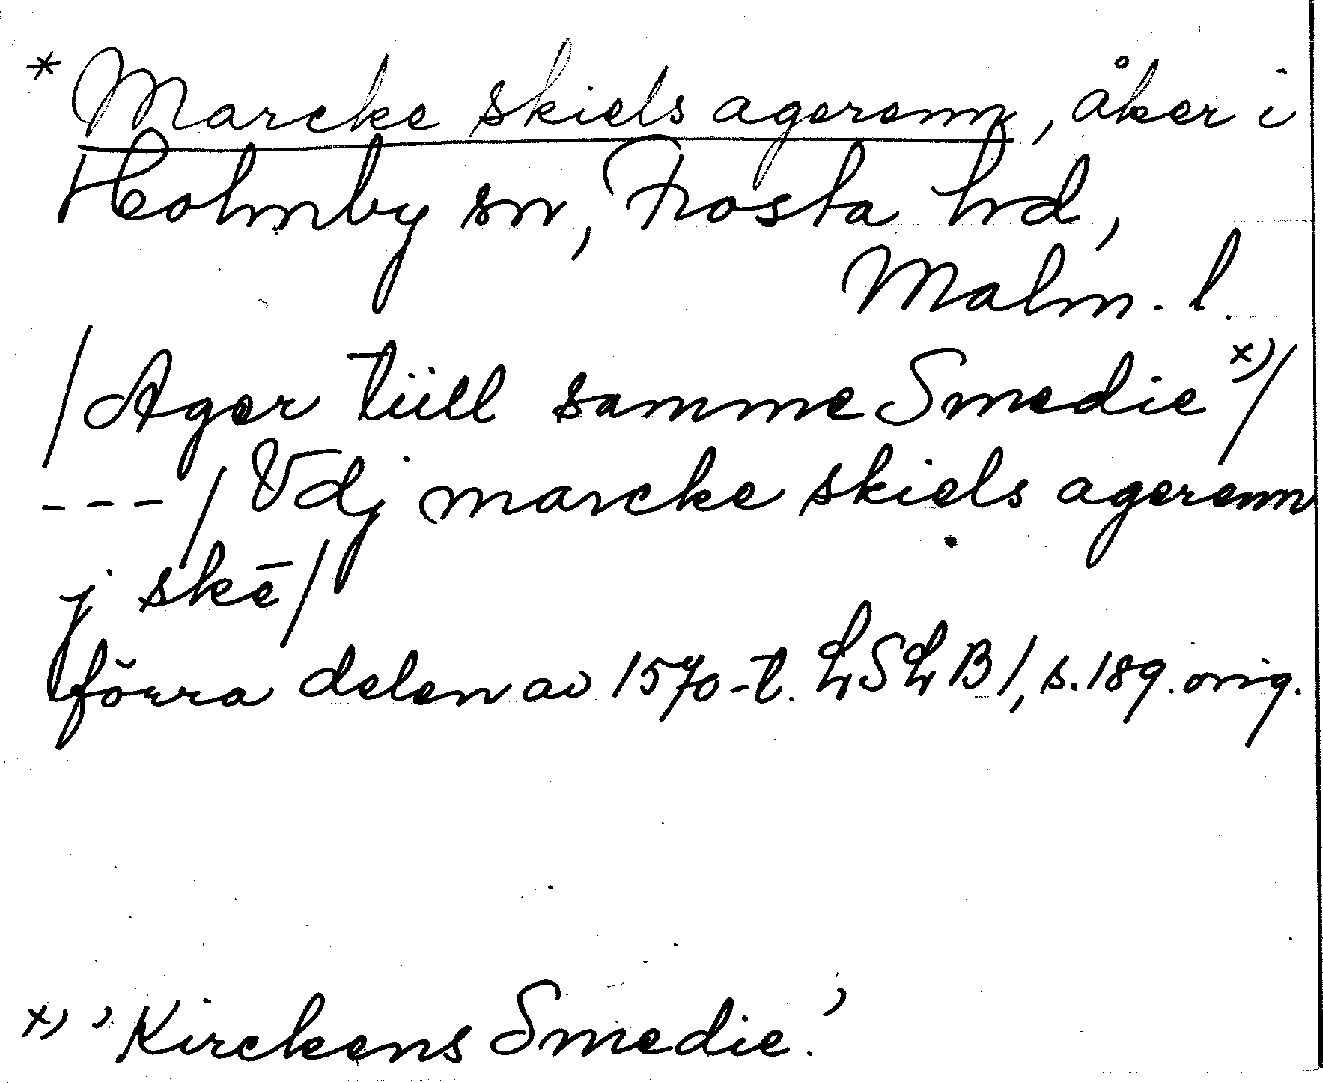 * Marcke skiels agerenn, åker i
Holmby sn, Frosta hd,
Malm. l.
/Ager tüll samme Smedie x)/
--- / Vdj marcke skiels agerenn
j skē/
förra delen av 1570-t. LSLB1, s. 189. orig.
x) 'Kirckens Smedie.'